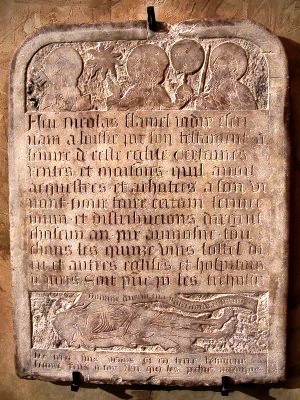 Feu nicolas flamel iadis escri
uain a laissie par son testament a
leuure de ceste eglise certaines
rentes et maisons quil auoit
acquestees et achetees a son vi
uant pour faire certain seruice
diuin et distribucions dargent
chascun an par aumosne tou
chans les quinze vins lostel di
eu et autres eglises et hospitaux
a paris Soit prie pour les trespassez
De terre suis venus et en terre retourne